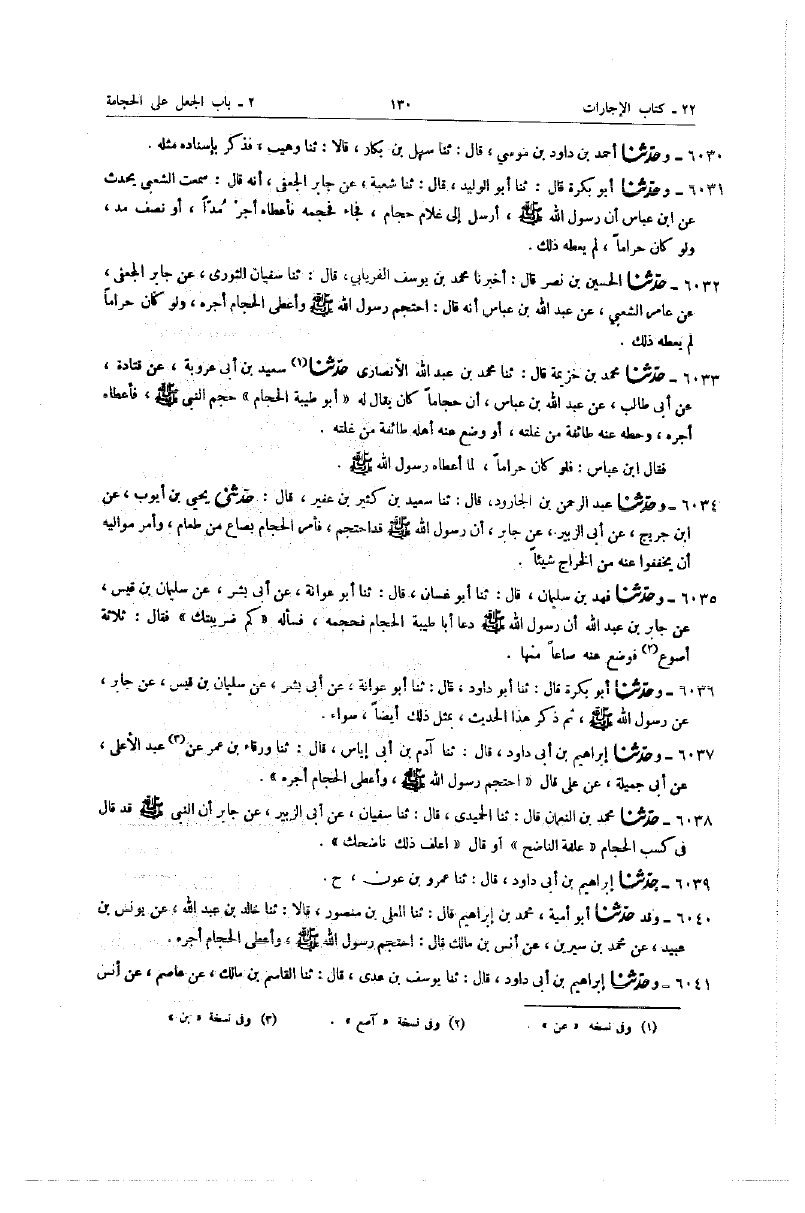 ٢٢ ـ كتاب الإجارات ١٣٠ ٢ ـ باب الجعل على الحجامة
٦٠٣٠ ـ وحدثنا أحمد بن داود بن موسى ، قال : ثنا سهل بن بكار ، قالا : ثنا وهيب ، فذكر بإسناده مثله .
٦٠٣١ ـ وحدثنا أبو بكرة قال : ثنا أبو الوليد ، قال : ثنا شعبة ، عن جابر الجعفى ، أنه قال : سمعت الشعبي يحدث
عن ابن عباس أن رسول الله ﷺ ، أرسل إلى غلام حجام ، فجاء فحجمه فأعطاه أجره مُدّاً ، أو نصف مد ،
ولو كان حراماً ، لم يعطه ذلك .
٦٠٣٢ ـ حدثنا الحسين بن نصر قال : أخبرنا محمد بن يوسف الفريابي ، قال : ثنا سفيان الثورى ، عن جابر الجعفى ،
عن عامر الشعبي ، عن عبد الله بن عباس أنه قال : احتجم رسول الله ﷺ وأعطى الحجام أجره ، ولو كان حراماً
لم يعطه ذلك .
٦٠٣٣ ـ حدثنا محمد بن خزيمة قال : ثنا محمد بن عبد الله الأنصارى حدثنا(١) سعيد بن أبى عروبة ، عن قتادة ،
عن أبى طالب ، عن عبد الله بن عباس ، أن حجاماً كان يقال له « أبو طيبة الحجام » حجم النبى ﷺ ، فأعطاه
أجره ، وحطه عنه طائفة من غلته ، أو وضع عنه أهله طائفة من غلته .
فقال ابن عباس : فلو كان حراماً ، لما أعطاه رسول الله ﷺ .
٦٠٣٤ ـ وحدثنا عبد الرحمن بن الجارود، قال : ثنا سعيد بن كثير بن عفير ، قال : حدثنى يحيى بن أيوب ، عن
ابن جريج ، عن أبى الزبير ، عن جابر ، أن رسول الله ﷺ قد احتجم ، فأمر الحجام بصاع من طعام ، وأمر مواليه
أن يخففوا عنه من الخراج شيئاً .
٦٠٣٥ ـ وحدثنا فهد بن سليمان ، قال : ثنا أبو غسان ، قال : ثنا أبو عوانة ، عن أبى بشر ، عن سليمان بن قيس ،
عن جابر بن عبد الله أن رسول الله ﷺ دعا أبا طيبة الحجام فحجمه ، فسأله « كم ضريبتك » فقال : ثلاثة
أصوع(٢) فوضع عنه صاعاً منها .
٦٠٣٦ ـ وحدثنا أبو بكرة قال : ثنا أبو داود ، قال : ثنا أبو عوانة ، عن أبى بشر ، عن سليمان بن قيس ، عن جابر ،
عن رسول الله ﷺ ، ثم ذكر هذا الحديث ، بمثل ذلك أيضاً ، سواء .
٦٠٣٧ ـ وحدثنا إبراهيم بن أبى داود ، قال : ثنا آدم بن أبى إياس ، قال : ثنا ورقاء بن عمر عن(٣) عبد الأعلى ،
عن أبى جميلة ، عن على قال « احتجم رسول الله ﷺ ، وأعطى الحجام أجره » .
٦٠٣٨ ـ حدثنا محمد بن النعمان قال : ثنا الحميدى ، قال : ثنا سفيان ، عن أبى الزبير ، عن جابر أن النبى ﷺ قد قال
فى كسب الحجام « علفة الناضح » أو قال « اعلف ذلك ناضحك » .
٦٠٣٩ ـ حدثنا إبراهيم بن أبى داود ، قال : ثنا عمرو بن عون ، ح .
٦٠٤٠ ـ وقد حدثنا أبو أمية ، محمد بن إبراهيم قال : ثنا المعلى بن منصور ، قالا : ثنا خالد بن عبد الله ، عن يونس بن
عبيد ، عن محمد بن سيرين ، عن أنس بن مالك قال : احتجم رسول الله ﷺ ، وأعطى الحجام أجره .
٦٠٤١ ـ وحدثنا إبراهيم بن أبى داود ، قال : ثنا يوسف بن عدى ، قال : ثنا القاسم بن مالك ، عن عاصم ، عن أنس
(١) وفى نسخه « عن » . (٢) وفى نسخة « آصع » . (٣) وفى نسخة « بن »